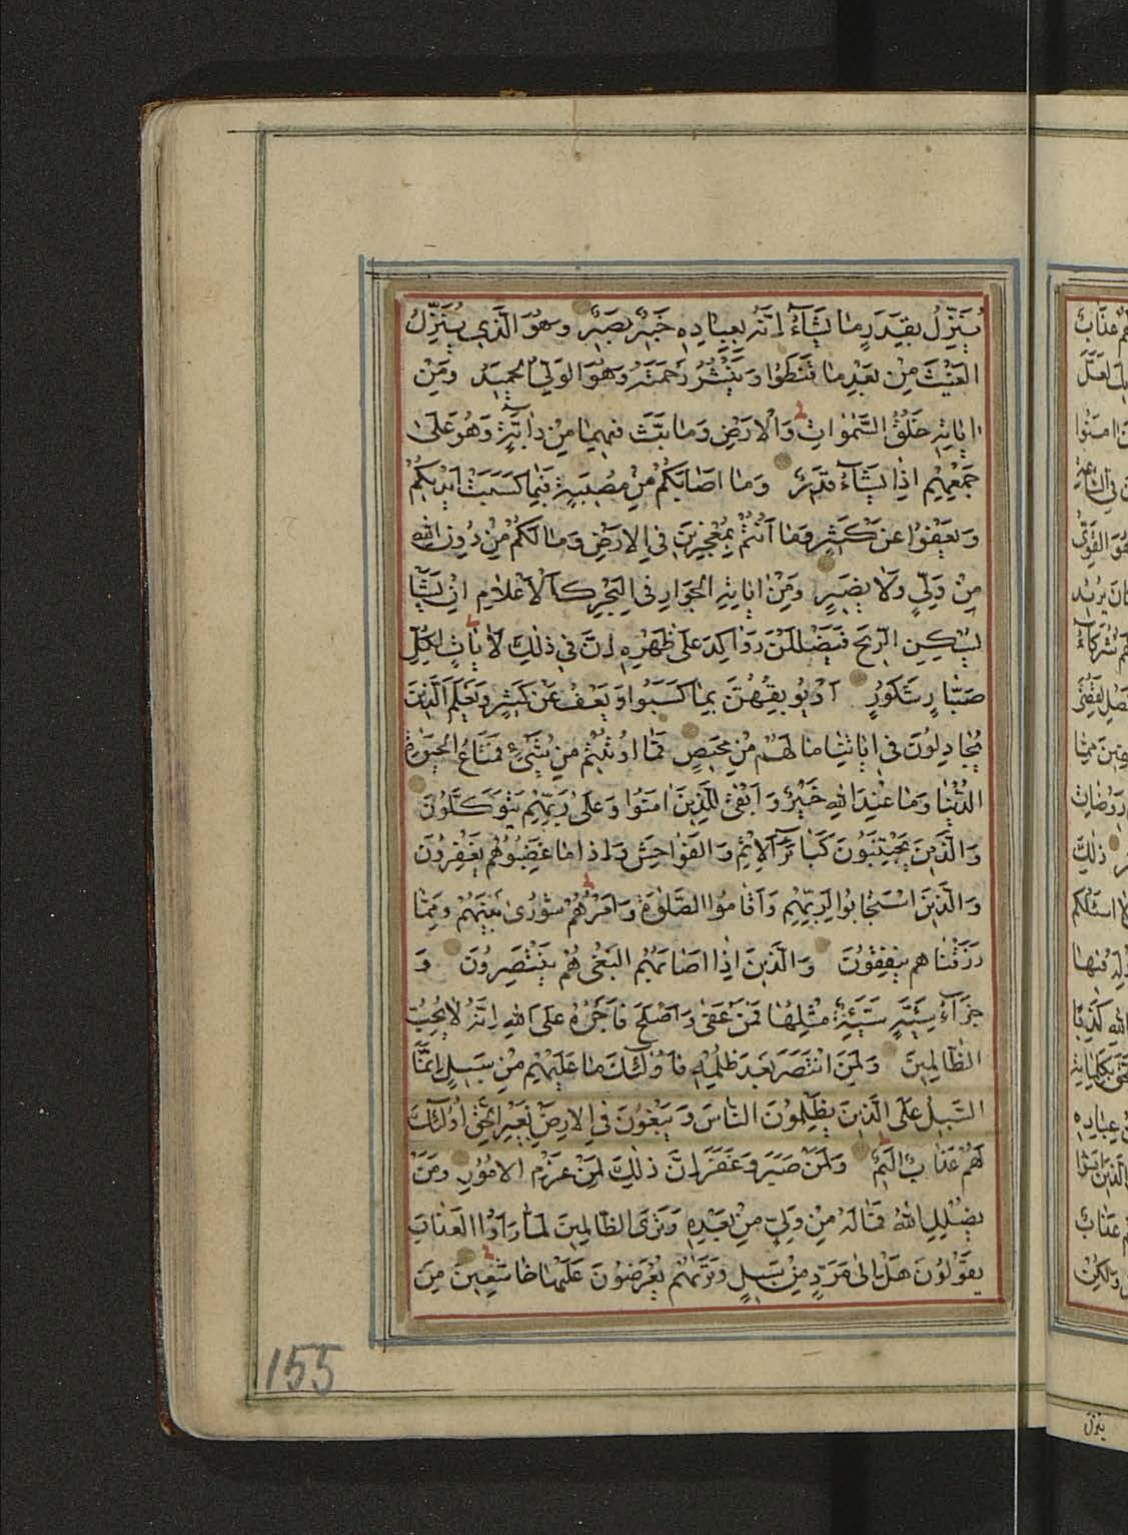 يُنَزِّلُ بِقَدَرٍ مَا يَشَآءُ اِنَّهُ بِعِبَادِهِ خَبِيرٌ بَصِيرٌ وَهُوَ الَّذِي يُنَزِّلُ
الغَيْثَ مِنْ بَعْدِ مَا قَنَطُوا وَيَنْشُرُ رَحْمَتَهُ وَهُوَ الوَلِيُّ الحَمِيدُ وَمِنْ
اٰيَاتِهِ خَلْقُ السَّمٰوَاتِ وَالْاَرْضِ وَمَا بَثَّ فِيهِمَا مِنْ دَآبَّةٍ وَهُوَ عَلٰى
جَمْعِهِمْ اِذَا يَشَآءُ قَدِيرٌ وَمَا اَصَابَكُمْ مِنْ مُصِيبَةٍ فَبِمَا كَسَبَتْ اَيْدِيكُمْ
وَيَعْفُوا عَنْ كَثِيرٍ وَمَا اَنْتُمْ بِمُعْجِزِينَ فِي الاَرْضِ وَمَا لَكُمْ مِنْ دُونِ اللهِ
مِنْ وَلِيٍّ وَلَا نَصِيرٍ وَمِنْ اٰيَاتِهِ الجَوَارِ فِي البَحْرِ كَالْاَعْلَامِ اِنْ يَشَأْ
يُسْكِنِ الرِّيحَ فَيَظْلَلْنَ رَوَاكِدَ عَلٰى ظَهْرِهِ اِنَّ فِي ذٰلِكَ لَاٰيَاتٍ لِكُلِّ
صَبَّارٍ شَكُورٍ اَوْ يُوبِقْهُنَّ بِمَا كَسَبُوا وَيَعْفُ عَنْ كَثِيرٍ وَيَعْلَمَ الَّذِينَ
يُجَادِلُونَ فِي اٰيَاتِنَا مَا لَهُمْ مِنْ مَحِيصٍ فَمَا اُوتِيتُمْ مِنْ شَيْءٍ فَمَتَاعُ الحَيٰوةِ
الدُّنْيَا وَمَا عِنْدَ اللهِ خَيْرٌ وَاَبْقٰى لِلَّذِينَ اٰمَنُوا وَعَلٰى رَبِّهِمْ يَتَوَكَّلُونَ
وَالَّذِينَ يَجْتَنِبُونَ كَبَائِرَ الاِثْمِ وَالفَوَاحِشَ وَاِذَا مَا غَضِبُوا هُمْ يَغْفِرُونَ
وَالَّذِينَ اسْتَجَابُوا لِرَبِّهِمْ وَاَقَامُوا الصَّلٰوةَ وَاَمْرُهُمْ شُورٰى بَيْنَهُمْ وَمِمَّا
رَزَقْنَاهُمْ يُنْفِقُونَ وَالَّذِينَ اِذَا اَصَابَهُمُ البَغْيُ هُمْ يَنْتَصِرُونَ وَ
جَزَآءُ سَيِّئَةٍ سَيِّئَةٌ مِثْلُهَا فَمَنْ عَفٰى وَاَصْلَحَ فَاَجْرُهُ عَلَى اللهِ اِنَّهُ لَا يُحِبُّ
الظَّالِمِينَ وَلَمَنِ انْتَصَرَ بَعْدَ ظُلْمِهِ فَاُولٰئِكَ مَا عَلَيْهِمْ مِنْ سَبِيلٍ اِنَّمَا
السَّبِيلُ عَلَى الَّذِينَ يَظْلِمُونَ النَّاسَ وَيَبْغُونَ فِي الاَرْضِ بِغَيْرِ الحَقِّ اُولٰئِكَ
لَهُمْ عَذَابٌ اَلِيمٌ وَلَمَنْ صَبَرَ وَغَفَرَ اِنَّ ذٰلِكَ لَمِنْ عَزْمِ الاُمُورِ وَمَنْ
يُضْلِلِ اللهُ فَمَا لَهُ مِنْ وَلِيٍّ مِنْ بَعْدِهِ وَتَرَى الظَّالِمِينَ لَمَّا رَاَوُا العَذَابَ
يَقُولُونَ هَلْ اِلٰى مَرَدٍّ مِنْ سَبِيلٍ وَتَرٰيهُمْ يُعْرَضُونَ عَلَيْهَا خَاشِعِينَ مِنَ
155